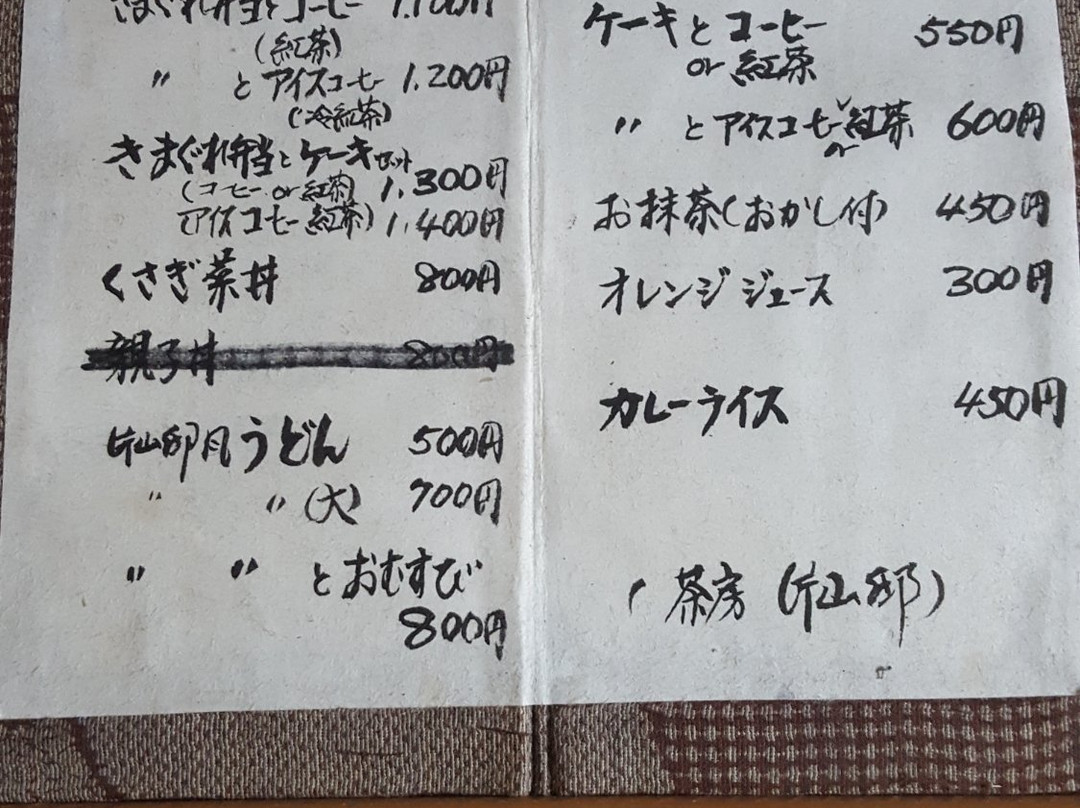 きまぐれ弁当とコーヒー 1.100円
(紅茶)
〃 とアイスコーヒー 1.200円
(冷紅茶)
きまぐれ弁当とケーキセット
(コーヒー or 紅茶) 1.300円
(アイスコーヒー 紅茶) 1.400円
くさぎ菜丼 800円
親子丼 800円
片山邸月うどん 500円
〃 〃 (大) 700円
〃 〃 とおむすび
800円
ケーキとコーヒー 550円
or 紅茶
〃 とアイスコーヒー 紅茶 600円
or
お抹茶(おかし付) 450円
オレンジジュース 300円
カレーライス 450円
茶房 (片山邸)